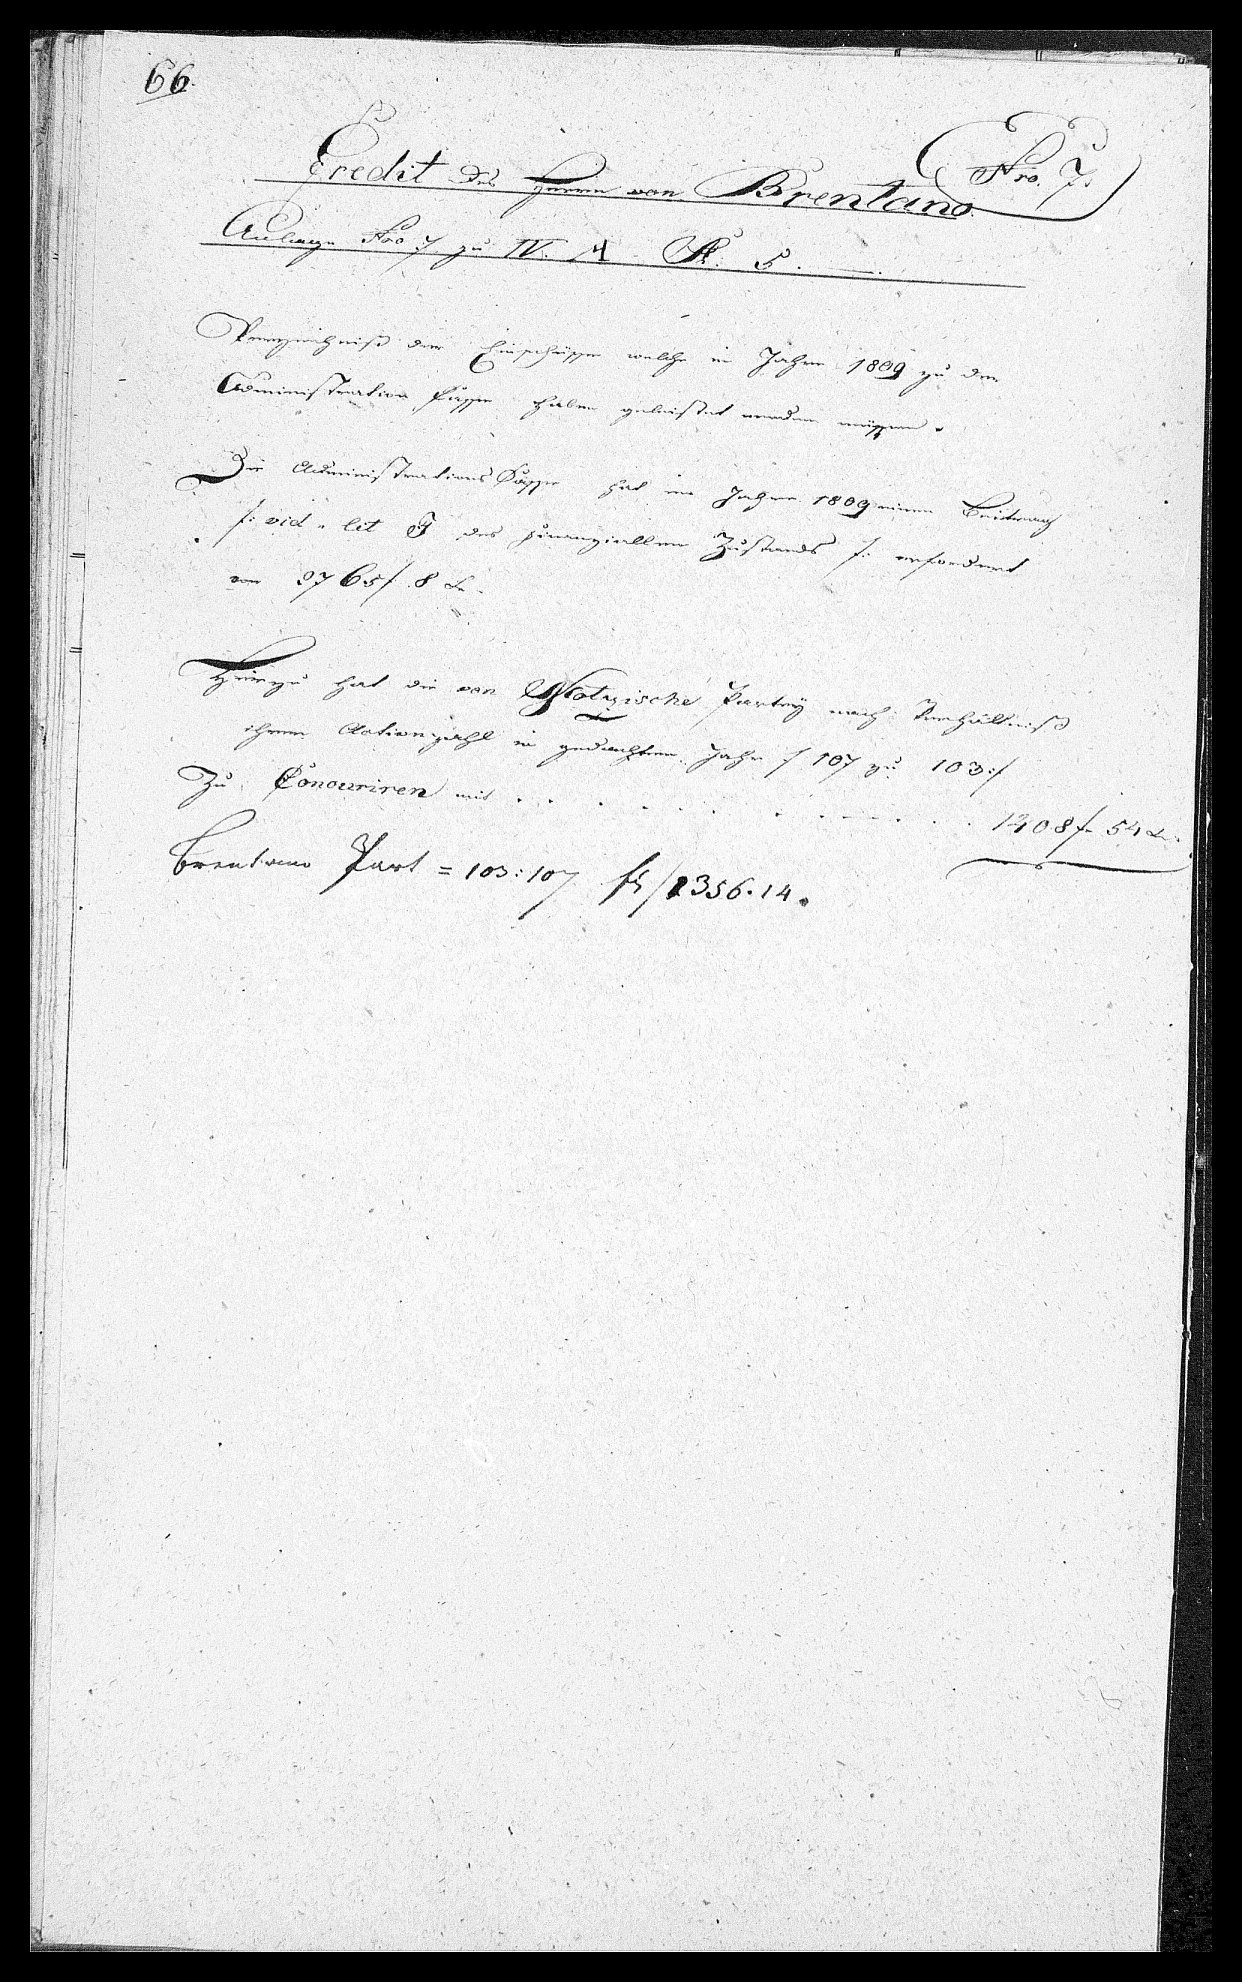 66.
Nro. 7.
Credit des Herrn von Brentano
Anlage Nro 7 zu IV. A R. 5.
Verzeichniß der Einschüsse welche im Jahre 1809 zu der
Administration Casse haben geleistet werden müssen.
Die Administrations Casse hat im Jahre 1809 einen Beitrag
/: vid. lit G des finanziellen Zustands /: erfordert
von 2765 f. 8 x.
Hierzu hat die von Notzische Partey nach Verhältniß
ihrer Actienzahl in gedachtem Jahre / 107 zu 103 :/
Zu Concuriren mit . . . . . . . . . . 1408 f. 54 x.
Brentano Part = 103:107 f 1356.14.